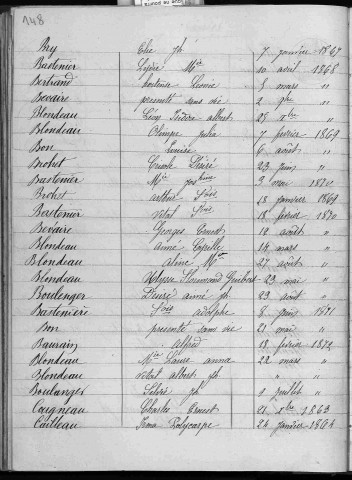 148
Bry Elie Jh 7 janvier 1867
Bastenier Lféré Mie 10 avril 1868
Bertrand hortence Louise 8 mars "
Bevaire présenté sans vie 2 9bre "
Blondeau Léon Isidore albert 28 Xbre "
Blondeau Olimpe Julia 7 février 1869
Bon Louise 6 août "
Brohet Désiré 23 juin "
Bastenier Mie 3 mai 1870
Brohet arthur Fois 18 janvier 1869
Bastenier Vital Fois 18 février 1870
Bevaire Georges Ernest 18 août "
Blondeau anné 14 mars "
Blondeau aline Mie 27 août "
Blondeau Ulysse Floremond Guilbert 23 mai "
Boulenger Désiré anné Jh 23 août "
Bastenière Fois adolphe 8 juin 1871
Bon présenté sans vie 21 mai "
Baurain alfred 18 février 1872
Blondeau Mie Laure anna 22 mars "
Blondeau Vital albert Jh " "
Boulanger Jh 9 juillet "
Caigneau Charles Ernest 21 Xbre 1863
Cailleau Irma Polycarpe 24 janvier 1864